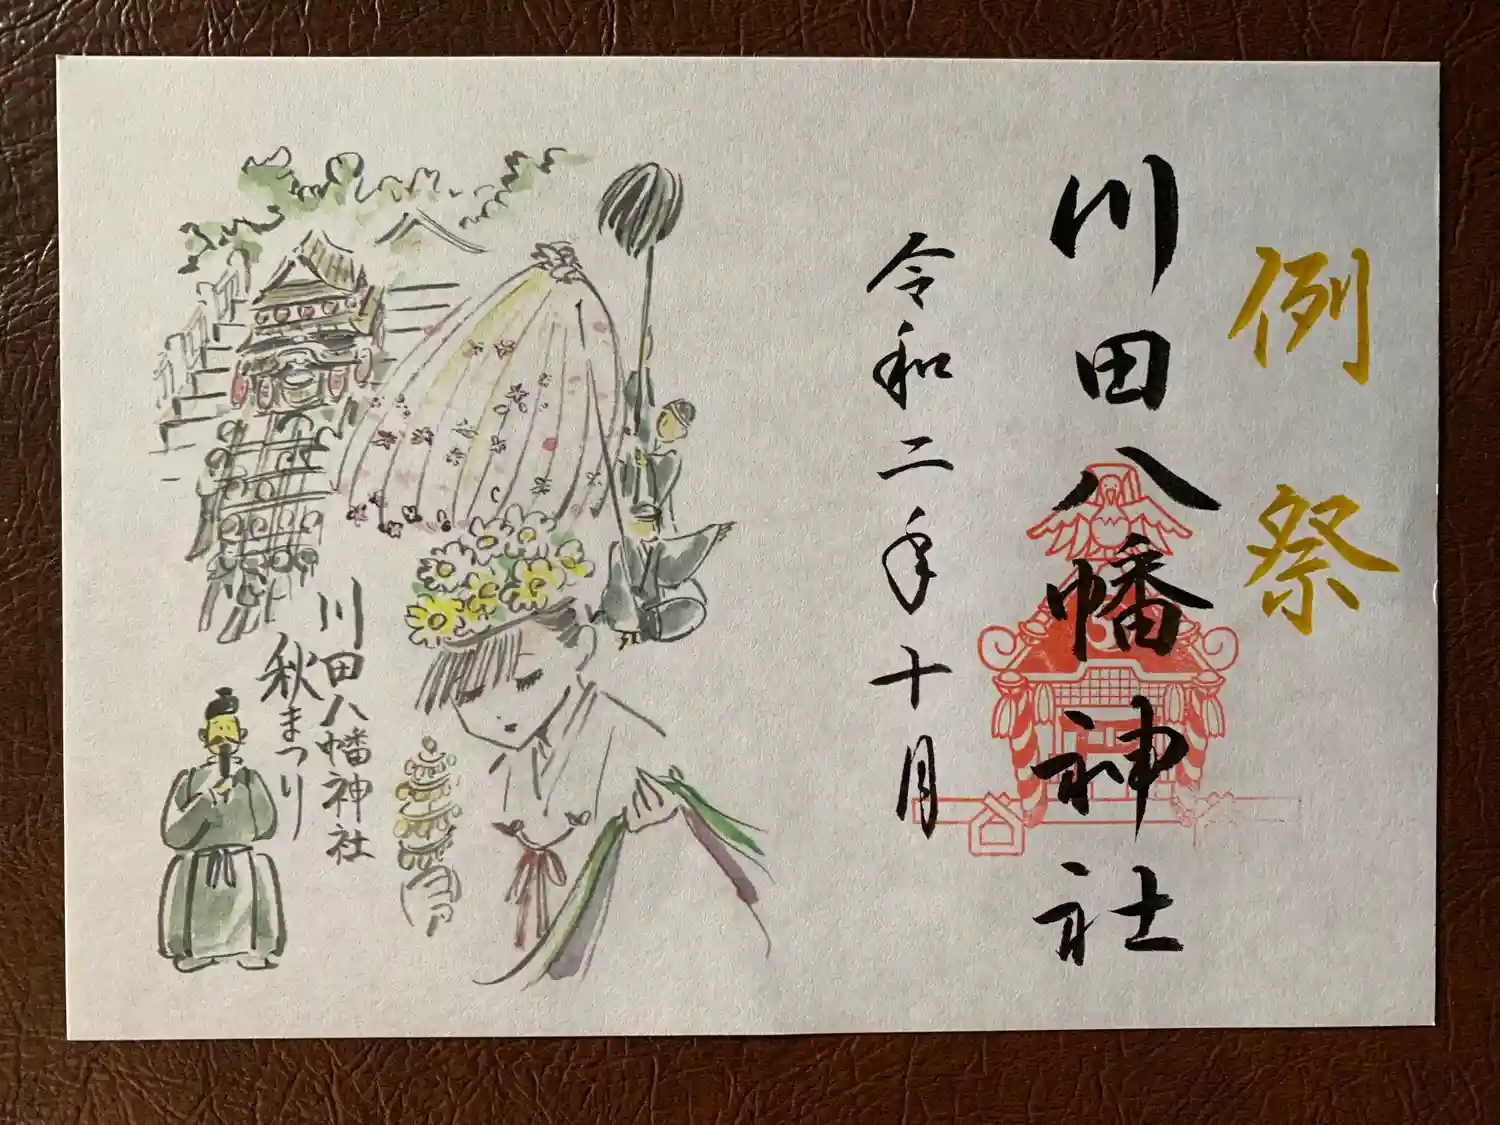 例祭
川田八幡神社
令和二年十月
川田八幡神社
秋まつり